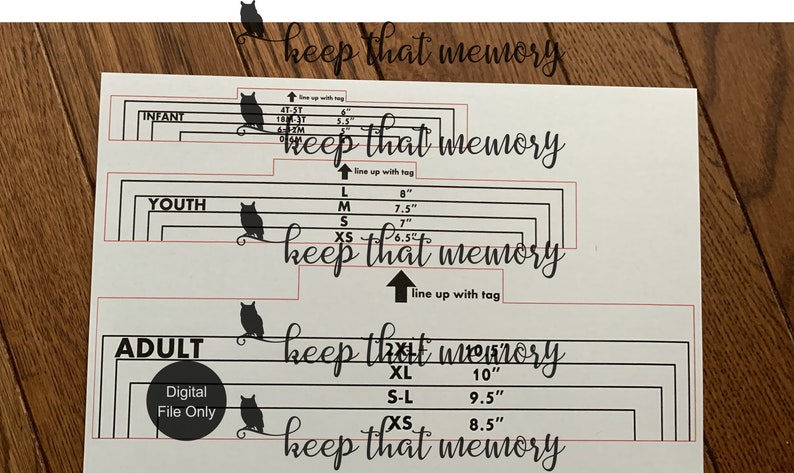 keep that memory
line up with tag
INFANT
4T-5T 6"
18M-3T 5.5"
6-12M 5"
0-6M
keep that memory
line up with tag
YOUTH
L 8"
M 7.5"
S 7"
XS 6.5"
keep that memory
line up with tag
ADULT
2XL+ 10.5"
keep that memory
XL 10"
Digital
File Only
S-L 9.5"
XS 8.5"
keep that memory